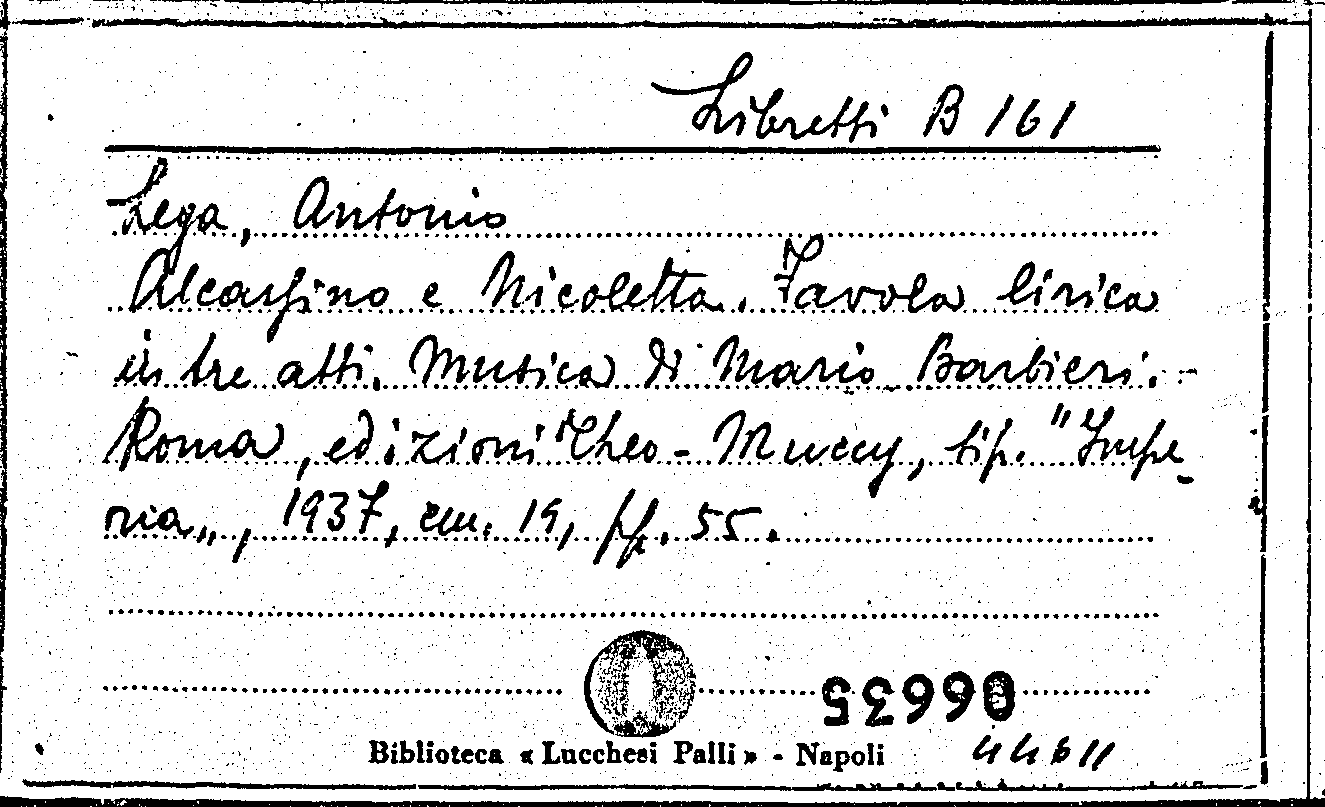 Libretti B 161
Lega, Antonio
Alcassino e Nicoletta. Favola lirica
in tre atti. Musica di Mario Barbieri. -
Roma, edizioni Theo-Muccy, tip. "Impe-
ria„, 1937, cm. 19, pp. 55.
06635
Biblioteca « Lucchesi Palli » - Napoli
44611